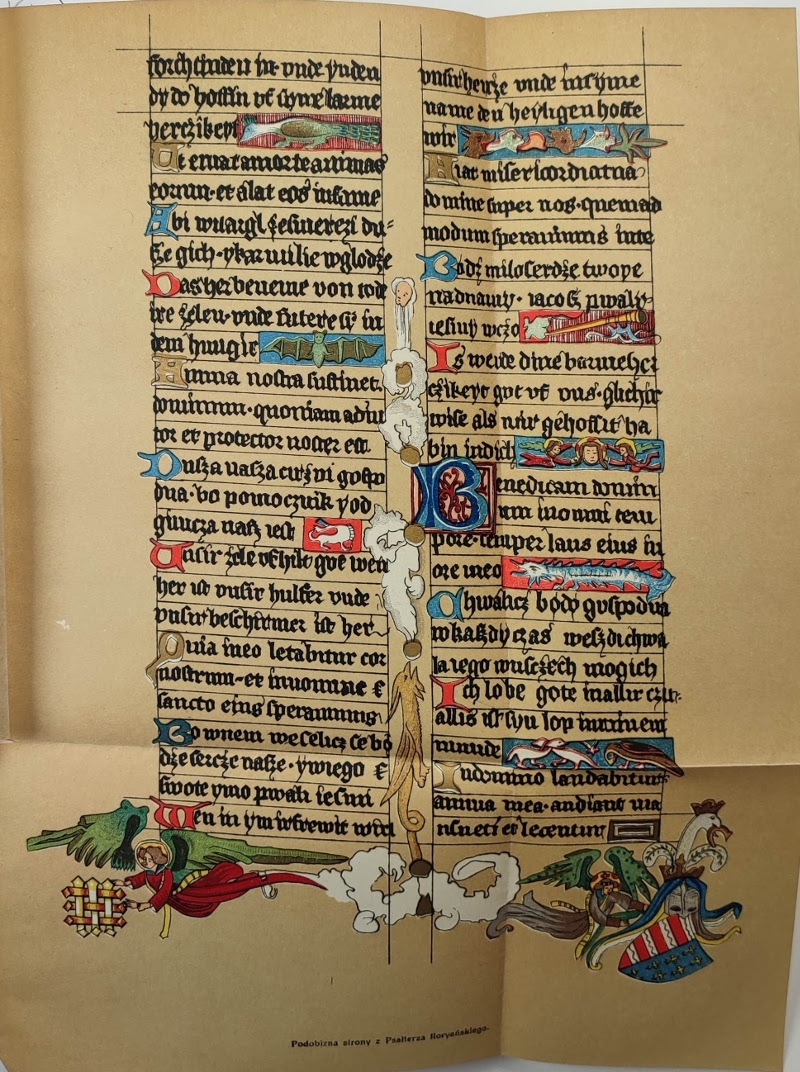 forchtinden in· vnde ynden
dy do hoffin vf syne barme
herczikeyt
Ut eruat a morte animas
eorum· et alat eos in fame
Abi wiargl ze smerczi du-
sze gich· ykarmilie w glodze
Das her beneme von tode
ire zelen· vnde futere sy in
dem hungir
Anima nostra sustinet·
dominum· quoniam adiu
tor et protector noster est
Dusza nasza czni gospo
dna· bo pomocznik y od
gimcza nasz iest
Unsir zele
her ist vnsir hulfer vnde
vnsir beschirmer ist her
Quia in eo letabitur cor
nostrum· et in nomine
sancto eius sperauimus
Bo w nem weselicz se bo
dze sercze nasze· y w iego
swote ymo pwali iesmi
Wen in ym irfrewit wirt
vnsir hercze vnde in syme
name den heyligen hoffe
wir
Fiat misericordia tua
domine super nos· quemad
modum sperauimus in te
Bodz miloserdze twoye
nad namy· iaco pwaly
iesmy w czo
Is werde dine barmeherc
czikeyt got vf vns· glichir
wise als wir gehoffit ha
bin in dich
Benedicam domin
um in omni tem
pore· semper laus eius in
ore meo
Chwalicz bodo gospodna
w kaszdy czas weszdi chwa
la iego w uszczech mogich
Ich lobe gote in allir czit·
allis ist syn lop in minem
munde
In domino laudabitur
anima mea· audiant ma
nsueti et letentur
Podobizna strony z Psałterza floryańskiego.